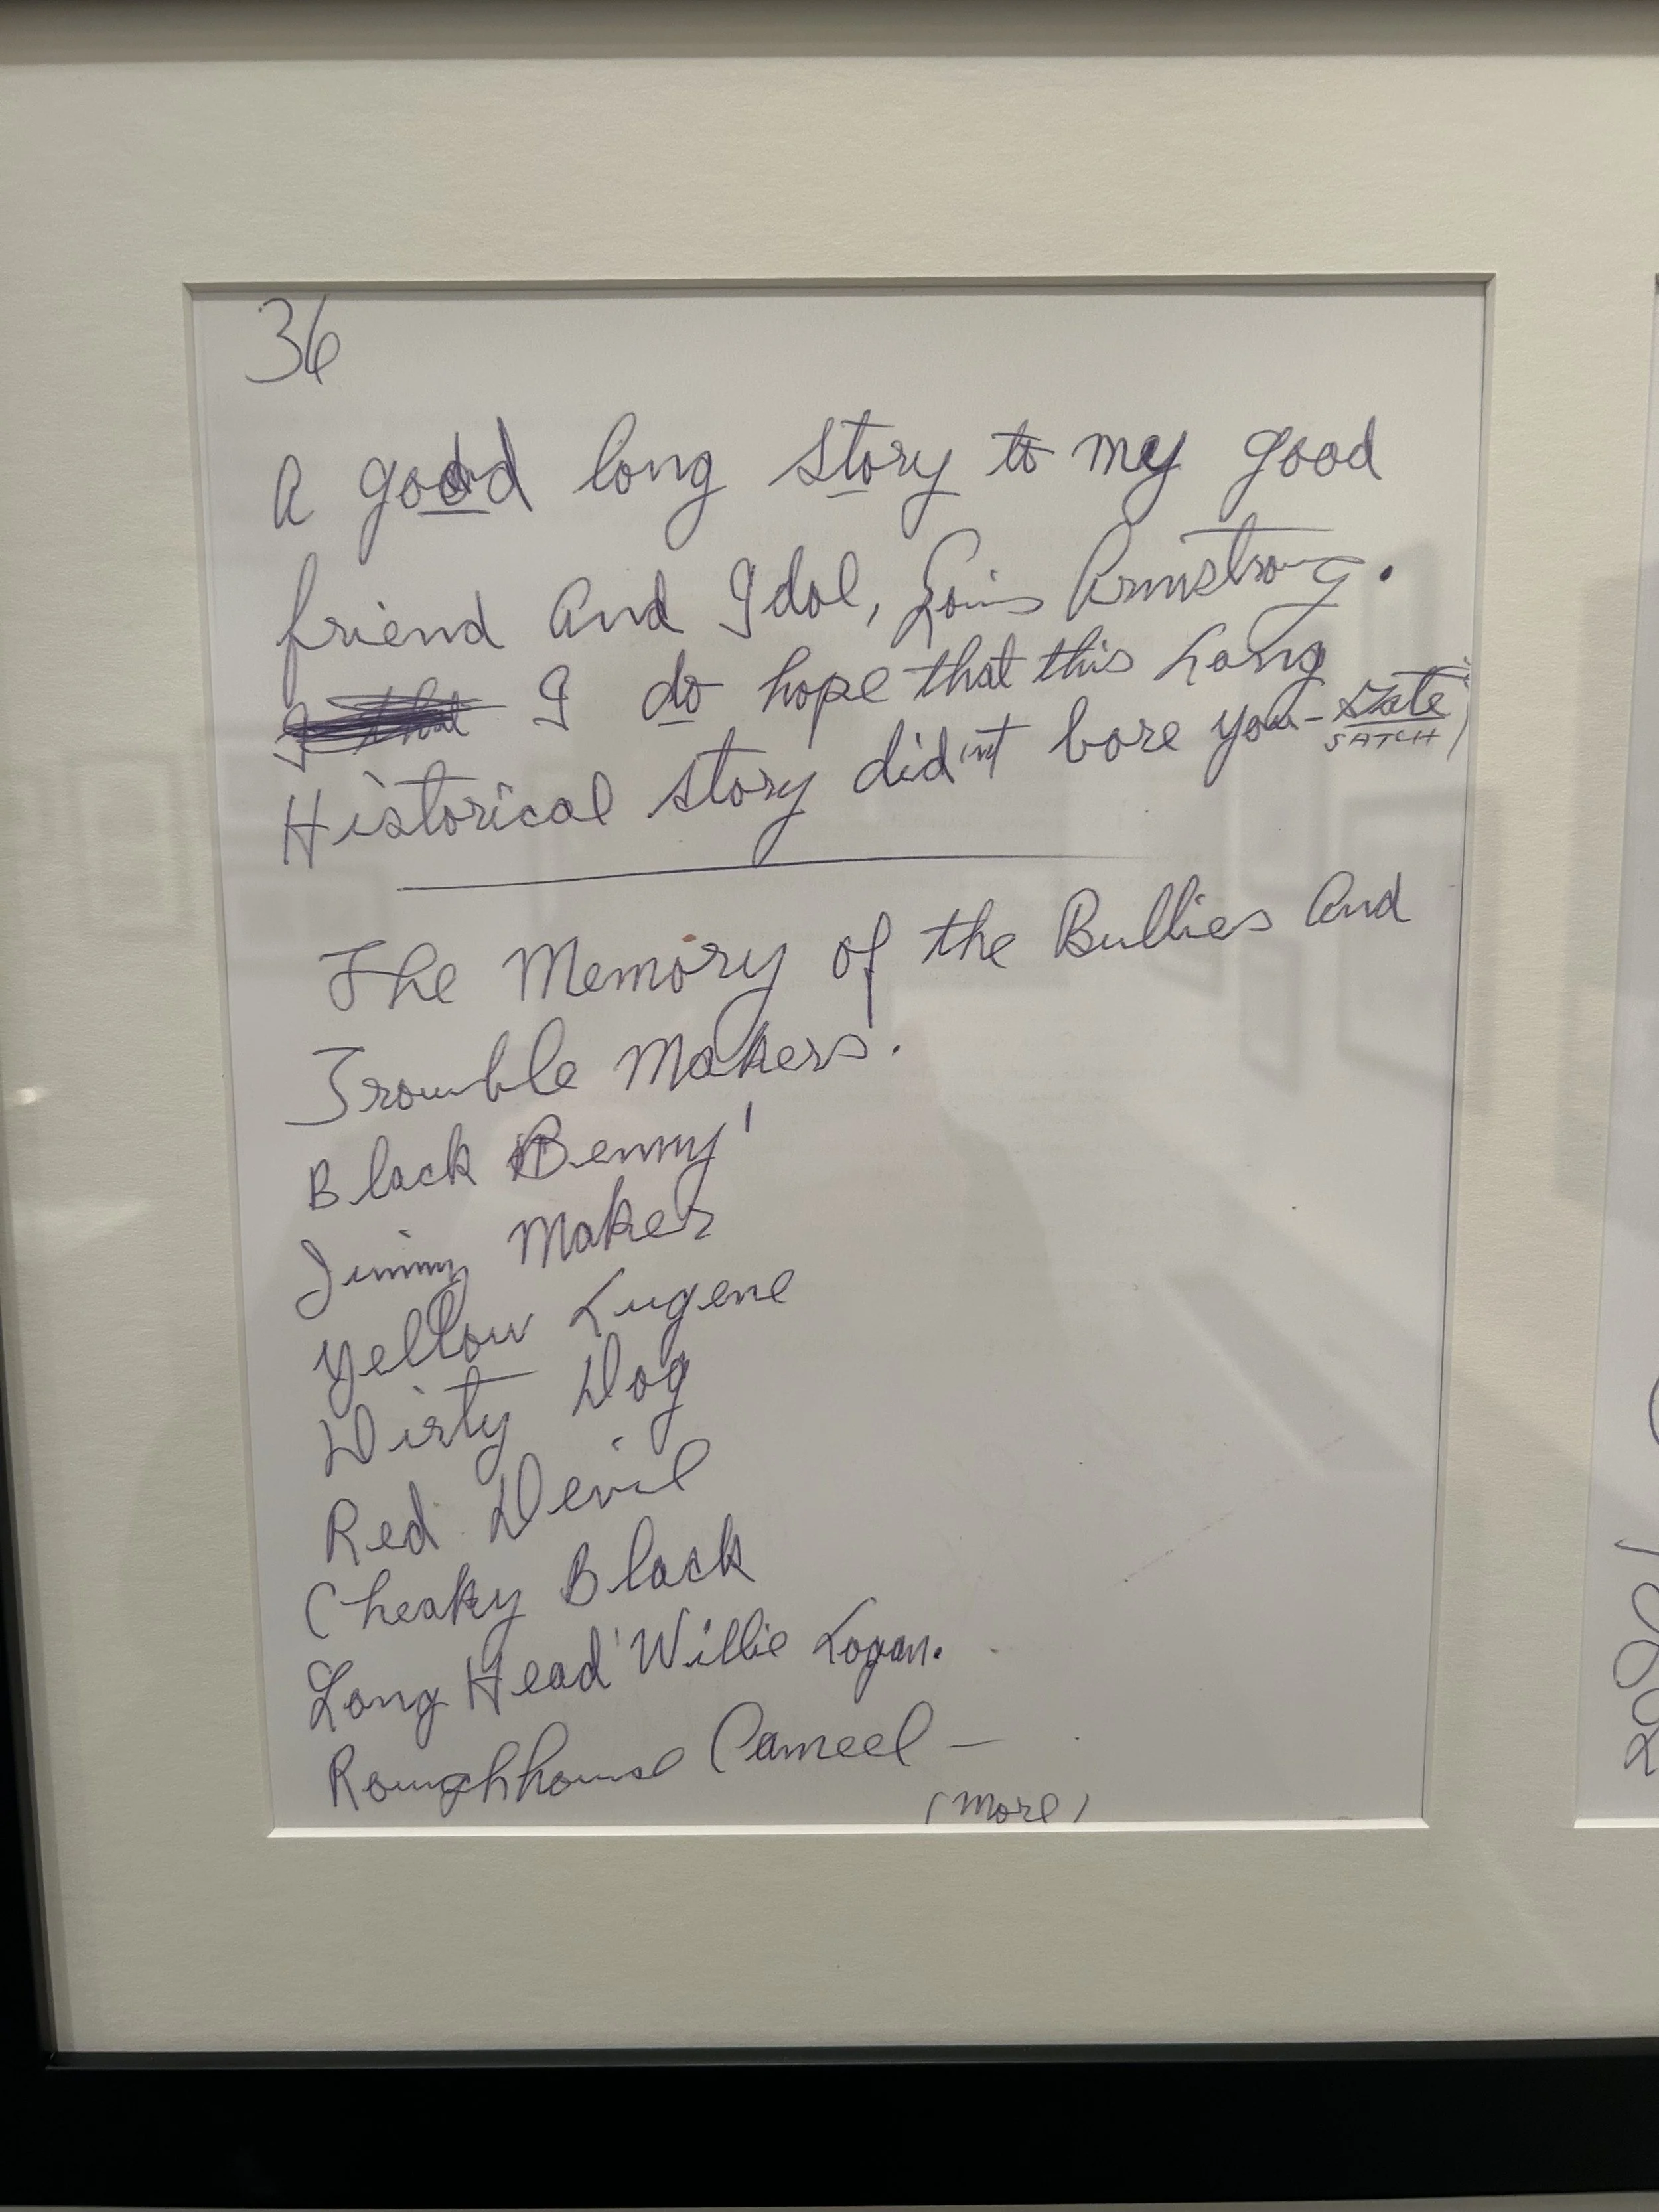 36
A good long story to my good
friend And Idol, Louis Armstrong.
I do hope that this Long
Historical story did'nt bore you-
SATCH
The Memory of the Bullies And
Trouble Makers.
Black Benny'
Jimmy Maker
Yellow Eugene
Dirty Dog
Red Devil
Cheaky Black
Long Head' Willie Logan.
Roughhouse Cameel —
(More)